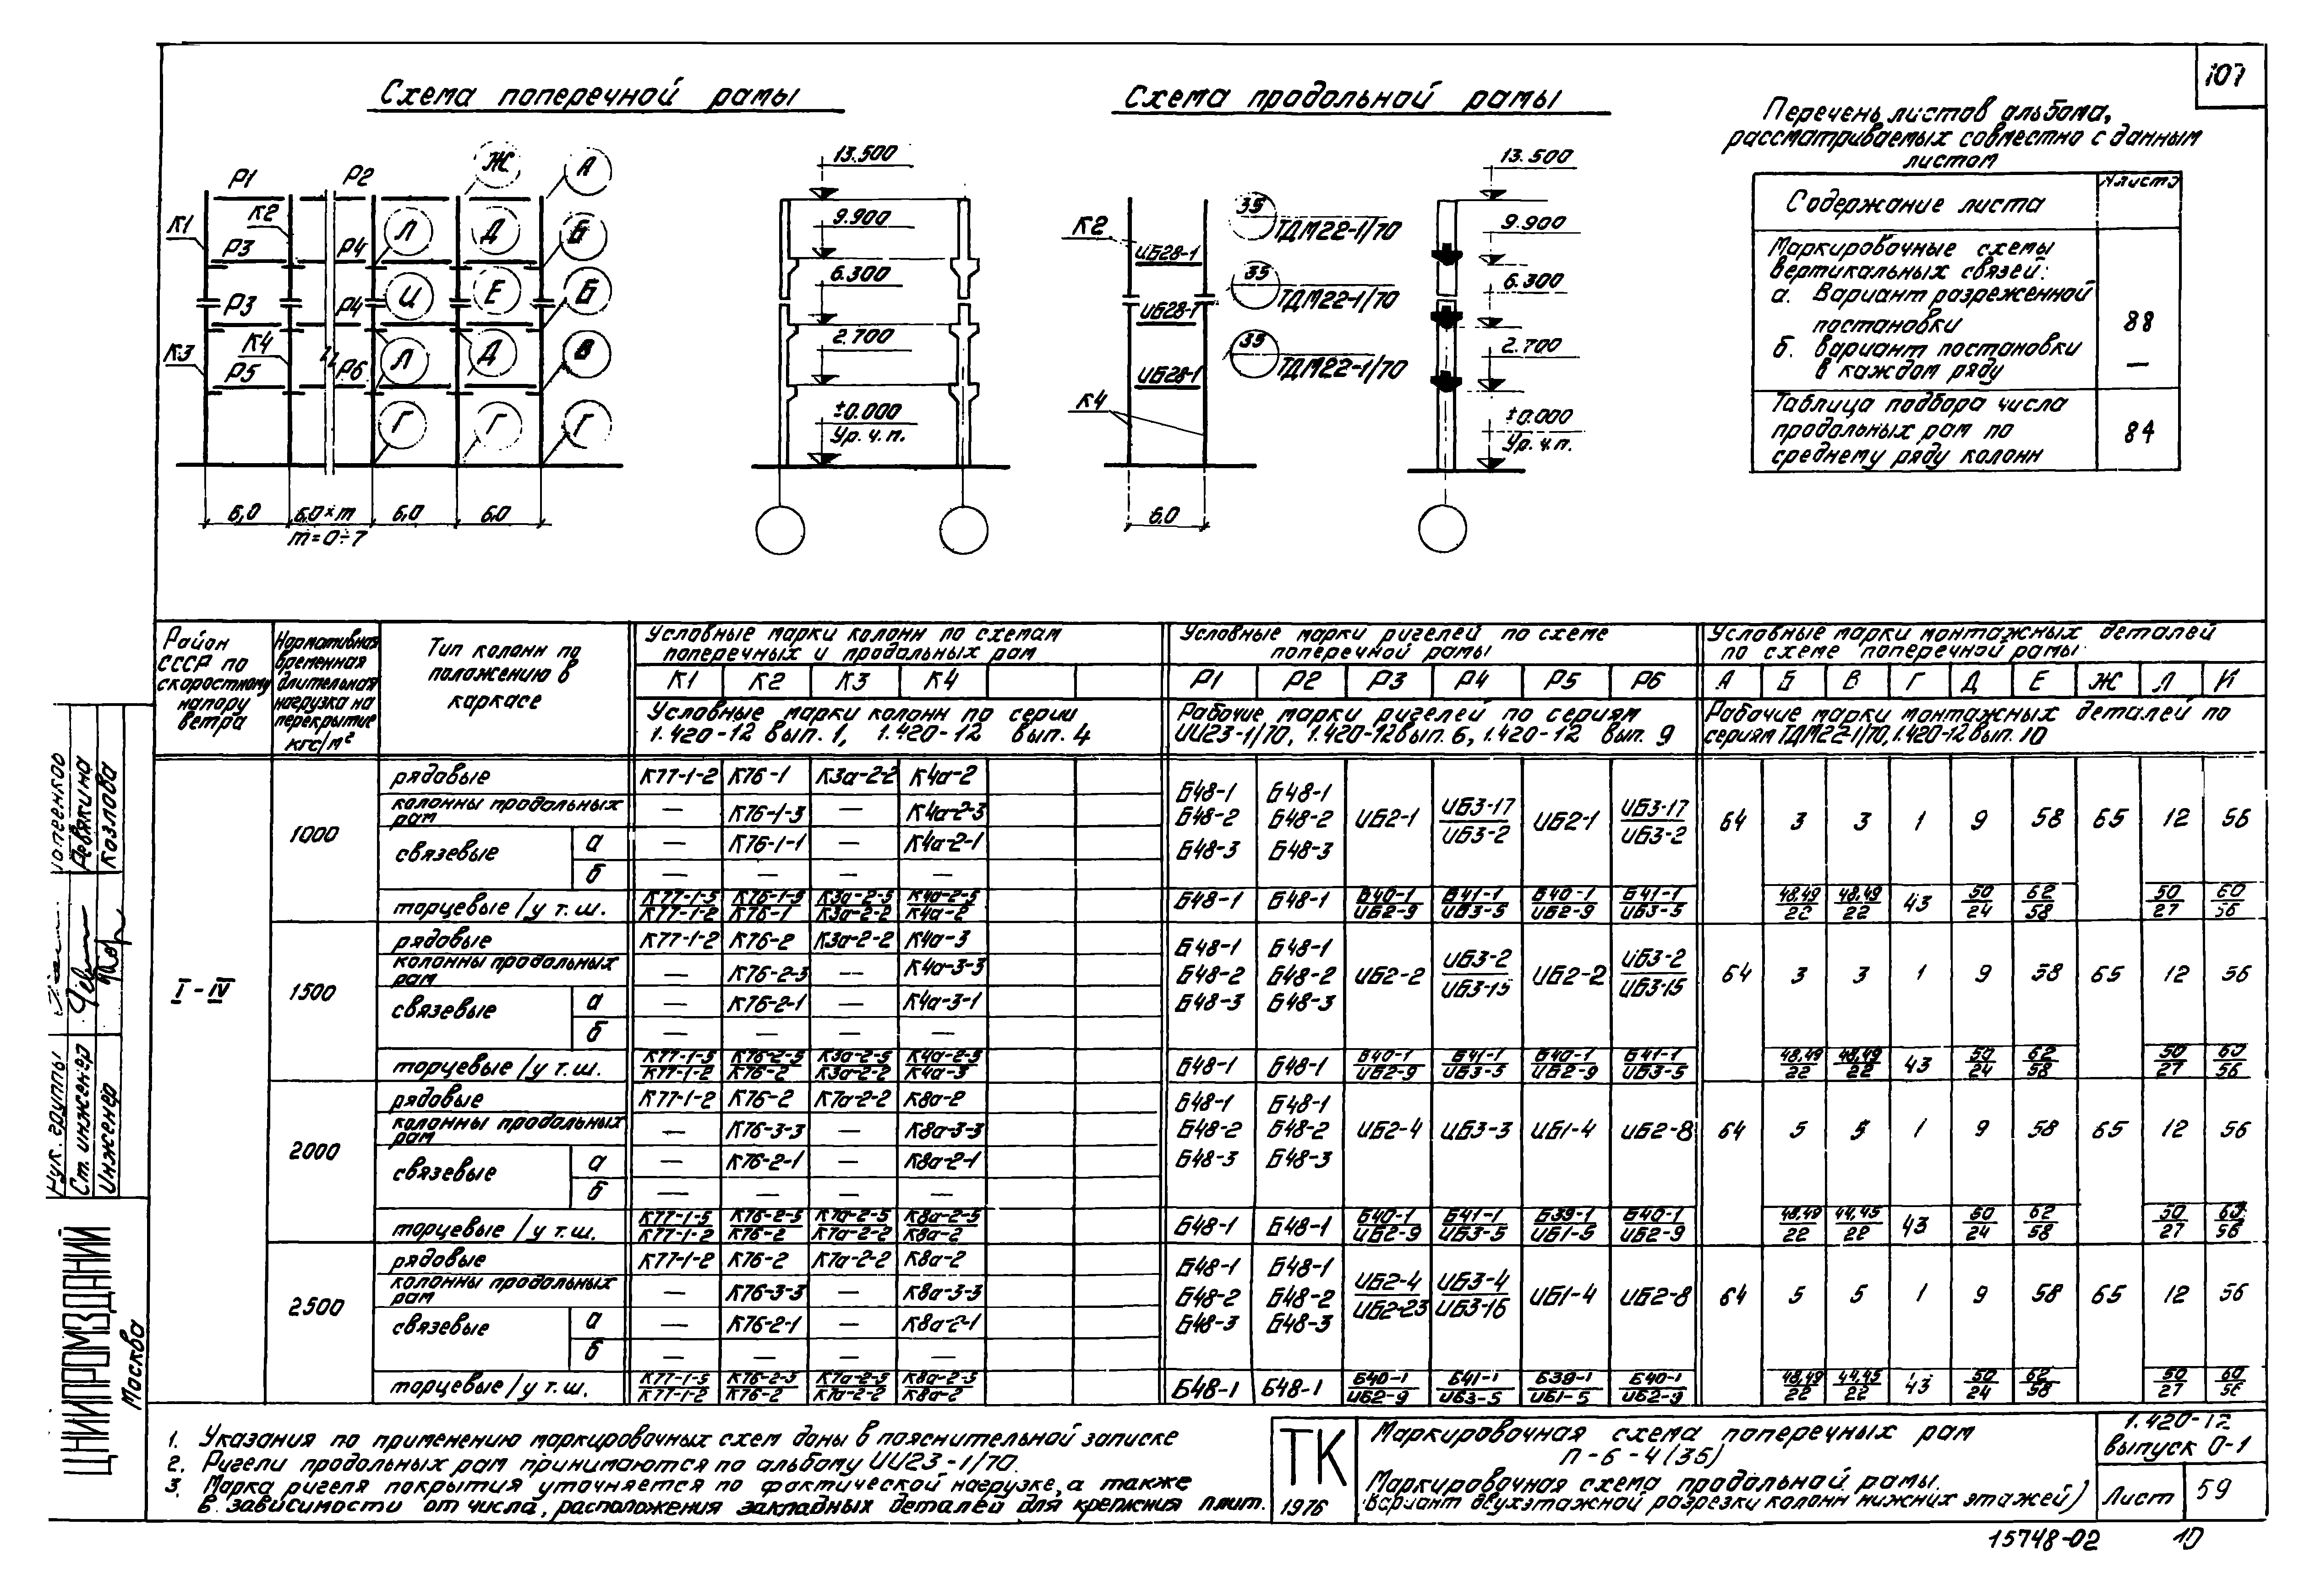 107
Схема поперечной рамы
Р1 Р2 Ж А
К1 К2 Р3 Р4 Л Д Б
Р3 Р4 И Е Б
К3 К4 Р5 Р6 Л Д В
Г Г Г
6,0 6,0×m 6,0 6,0
m=0÷7
13.500
9.900
6.300
2.700
±0.000
Ур. ч.п.
Схема продольной рамы
К2 ИБ28-1 35 ТДМ22-1/70
ИБ28-1 35 ТДМ22-1/70
ИБ28-1 35 ТДМ22-1/70
К4
6,0
13.500
9.900
6.300
2.700
±0.000
Ур. ч.п.
Перечень листов альбома,
рассматриваемых совместно с данным
листом
Содержание листа № листа
Маркировочные схемы
вертикальных связей:
а. Вариант разреженной
постановки 88
б. Вариант постановки
в каждом ряду —
Таблица подбора числа
продольных рам по 84
среднему ряду колонн
Район СССР по скоростному напору ветра
Нормативная временная длительная нагрузка на перекрытие кгс/м²
Тип колонн по положению в каркасе
Условные марки колонн по схемам поперечных и продольных рам
К1 К2 К3 К4
Условные марки колонн по серии 1.420-12 вып. 1, 1.420-12 вып. 4
Условные марки ригелей по схеме поперечной рамы
Р1 Р2 Р3 Р4 Р5 Р6
Рабочие марки ригелей по сериям ИИ23-1/70, 1.420-12 вып. 6, 1.420-12 вып. 9
Условные марки монтажных деталей по схеме поперечной рамы
А Б В Г Д Е Ж Л И
Рабочие марки монтажных деталей по сериям ТДМ22-1/70, 1.420-12 вып. 10
I - IV
1000
рядовые К77-1-2 К76-1 К3а-2-2 К4а-2
колонны продольных рам — К76-1-3 — К4а-2-3
связевые а — К76-1-1 — К4а-2-1
б — — — —
Б48-1 Б48-1
Б48-2 Б48-2 ИБ2-1 ИБ3-17/ИБ3-2 ИБ2-1 ИБ3-17/ИБ3-2 64 3 3 1 9 58 65 12 56
Б48-3 Б48-3
торцевые / у т.ш. К77-1-5/К77-1-2 К76-1-5/К76-1 К3а-2-5/К3а-2-2 К4а-2-5/К4а-2 Б48-1 Б48-1 Б40-1/ИБ2-9 Б41-1/ИБ3-5 Б40-1/ИБ2-9 Б41-1/ИБ3-5 48,49/22 48,49/22 43 50/24 62/58 50/27 60/56
1500
рядовые К77-1-2 К76-2 К3а-2-2 К4а-3
колонны продольных рам — К76-2-3 — К4а-3-3
связевые а — К76-2-1 — К4а-3-1
б — — — —
Б48-1 Б48-1
Б48-2 Б48-2 ИБ2-2 ИБ3-2/ИБ3-15 ИБ2-2 ИБ3-2/ИБ3-15 64 3 3 1 9 58 65 12 56
Б48-3 Б48-3
торцевые / у т.ш. К77-1-5/К77-1-2 К76-2-5/К76-2 К3а-2-5/К3а-2-2 К4а-2-5/К4а-3 Б48-1 Б48-1 Б40-1/ИБ2-9 Б41-1/ИБ3-5 Б40-1/ИБ2-9 Б41-1/ИБ3-5 48,49/22 48,49/22 43 50/24 62/58 50/27 60/56
2000
рядовые К77-1-2 К76-2 К7а-2-2 К8а-2
колонны продольных рам — К76-3-3 — К8а-3-3
связевые а — К76-2-1 — К8а-2-1
б — — — —
Б48-1 Б48-1
Б48-2 Б48-2 ИБ2-4 ИБ3-3 ИБ1-4 ИБ2-8 64 5 5 1 9 58 65 12 56
Б48-3 Б48-3
торцевые / у т.ш. К77-1-5/К77-1-2 К76-2-5/К76-2 К7а-2-5/К7а-2-2 К8а-2-5/К8а-2 Б48-1 Б48-1 Б40-1/ИБ2-9 Б41-1/ИБ3-5 Б39-1/ИБ1-5 Б40-1/ИБ2-9 48,49/22 44,45/22 43 50/24 62/58 50/27 60/56
2500
рядовые К77-1-2 К76-2 К7а-2-2 К8а-2
колонны продольных рам — К76-3-3 — К8а-3-3
связевые а — К76-2-1 — К8а-2-1
б — — — —
Б48-1 Б48-1
Б48-2 Б48-2 ИБ2-4/ИБ2-23 ИБ3-4/ИБ3-16 ИБ1-4 ИБ2-8 64 5 5 1 9 58 65 12 56
Б48-3 Б48-3
торцевые / у т.ш. К77-1-5/К77-1-2 К76-2-5/К76-2 К7а-2-5/К7а-2-2 К8а-2-5/К8а-2 Б48-1 Б48-1 Б40-1/ИБ2-9 Б41-1/ИБ3-5 Б39-1/ИБ1-5 Б40-1/ИБ2-9 48,49/22 44,45/22 43 50/24 62/58 50/27 60/56
1. Указания по применению маркировочных схем даны в пояснительной записке
2. Ригели продольных рам принимаются по альбому ИИ23-1/70.
3. Марка ригеля покрытия уточняется по фактической нагрузке, а также
в зависимости от числа, расположения закладных деталей для крепления плит.
ТК
1976
Маркировочная схема поперечных рам
П-6-4(36)
Маркировочная схема продольной рамы.
(Вариант двухэтажной разрезки колонн нижних этажей)
1.420-12
выпуск 0-1
Лист 59
15748-02 10
Рук. группы
Ст. инженер Ревякина
Инженер Козлова
ЦНИИПРОМЗДАНИЙ
Москва